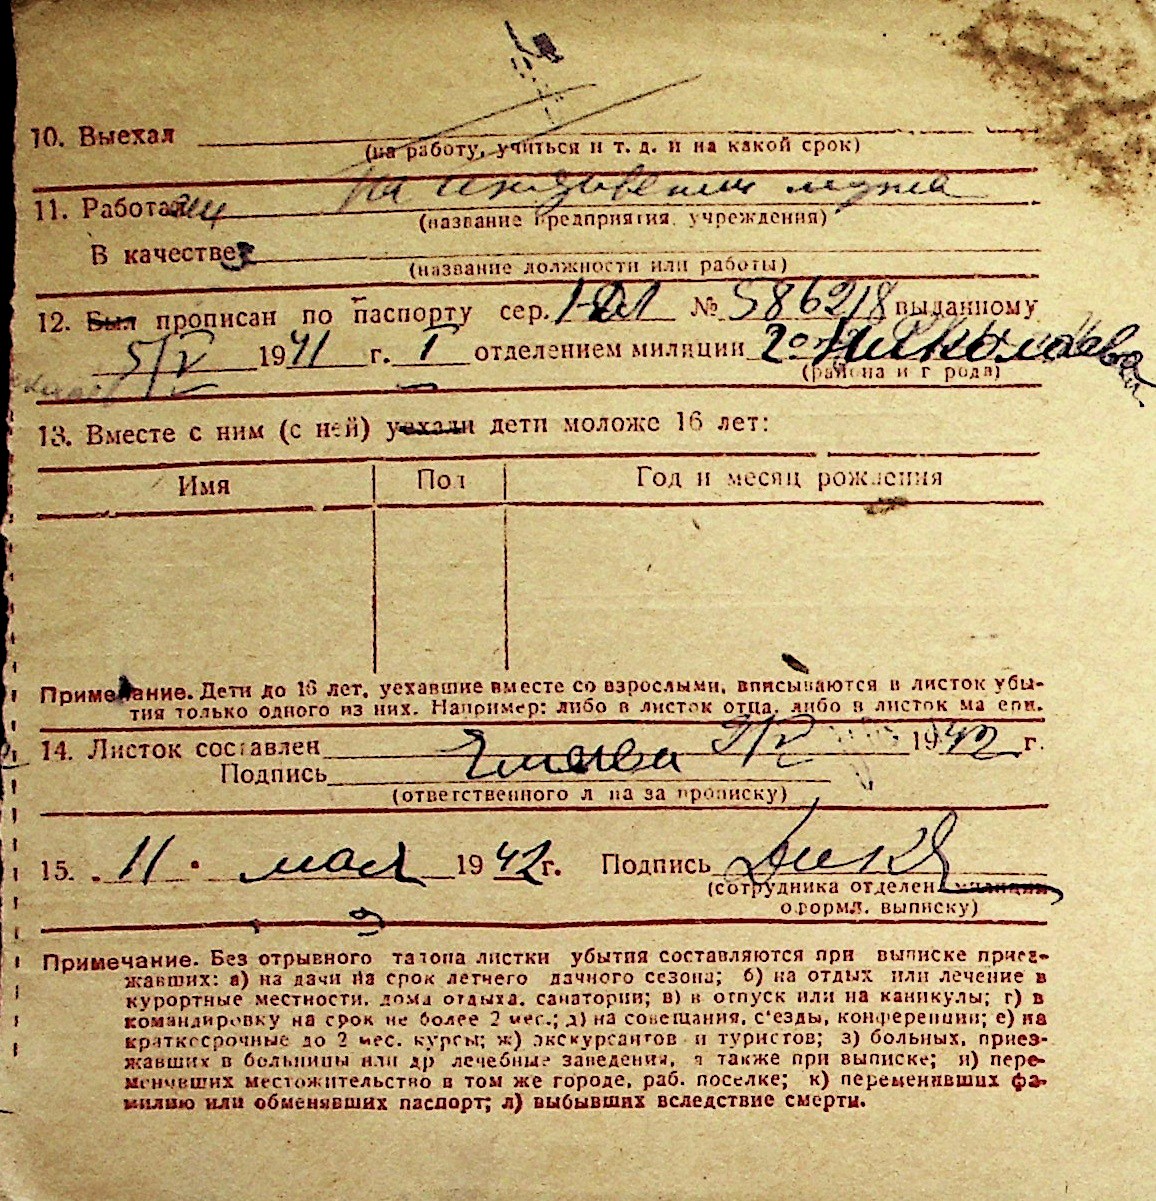 10. Выехал
(на работу, учиться и т. д. и на какой срок)
на иждивении мужа
11. Работает
(название предприятия, учреждения)
В качестве
(название должности или работы)
12. Был прописан по паспорту сер. № 586218 выданному
5/V 1941 г. I отделением милиции гор Николаева
(района и города)
13. Вместе с ним (с ней) уехали дети моложе 16 лет:
Имя Пол Год и месяц рождения
Примечание. Дети до 16 лет, уехавшие вместе со взрослыми, вписываются в листок убы-
тия только одного из них. Например: либо в листок отца, либо в листок матери.
14. Листок составлен 9/V 1942 г.
Подпись
(ответственного лица за прописку)
15. 11 • мая 1942 г. Подпись
(сотрудника отделен. милиции
оформл. выписку)
Примечание. Без отрывного талона листки убытия составляются при выписке приез-
жавших: а) на дачи на срок летнего дачного сезона; б) на отдых или лечение в
курортные местности, дома отдыха, санатории; в) в отпуск или на каникулы; г) в
командировку на срок не более 2 мес.; д) на совещания, с'езды, конференции; е) на
краткосрочные до 2 мес. курсы; ж) экскурсантов и туристов; з) больных, приез-
жавших в больницы или др лечебные заведения, а также при выписке; и) пере-
менивших местожительство в том же городе, раб. поселке; к) переменивших фа-
милию или обменявших паспорт; л) выбывших вследствие смерти.